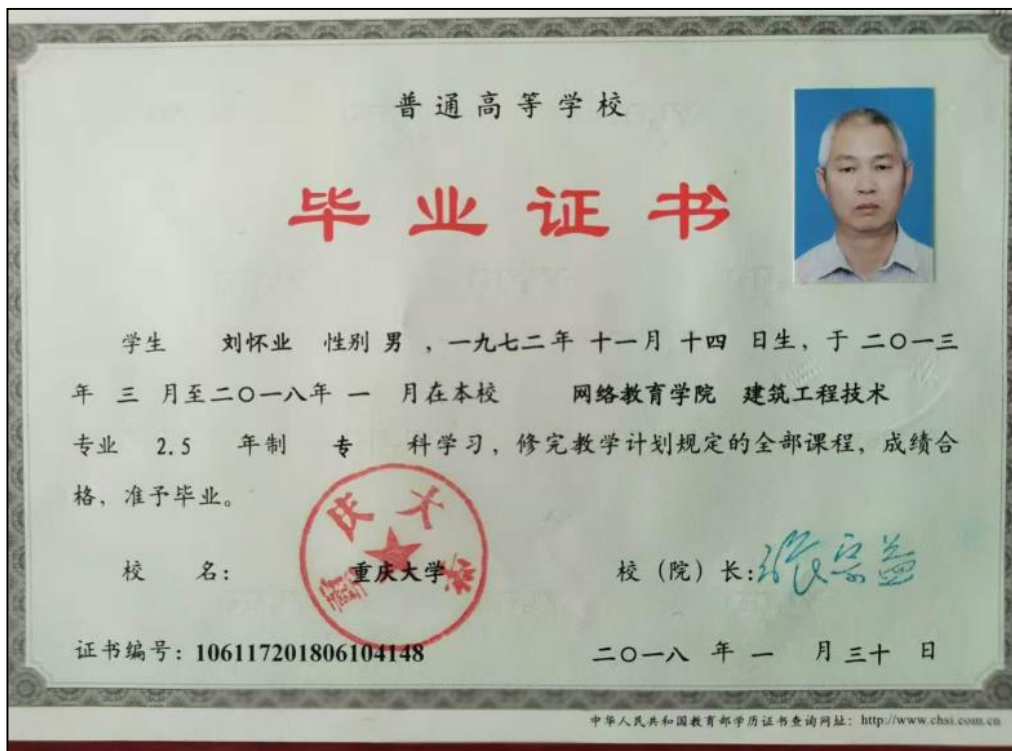 普通高等学校
毕业证书
学生 刘怀业 性别 男 ，一九七二年 十一月 十四 日生，于 二〇一三
年 三 月至二〇一八年 一 月在本校 网络教育学院 建筑工程技术
专业 2.5 年制 专 科学习，修完教学计划规定的全部课程，成绩合
格，准予毕业。
重庆大学
校 名： 重庆大学 校（院）长：张宗益
证书编号：106117201806104148 二〇一八 年 一 月 三十 日
中华人民共和国教育部学历证书查询网址：http://www.chsi.com.cn